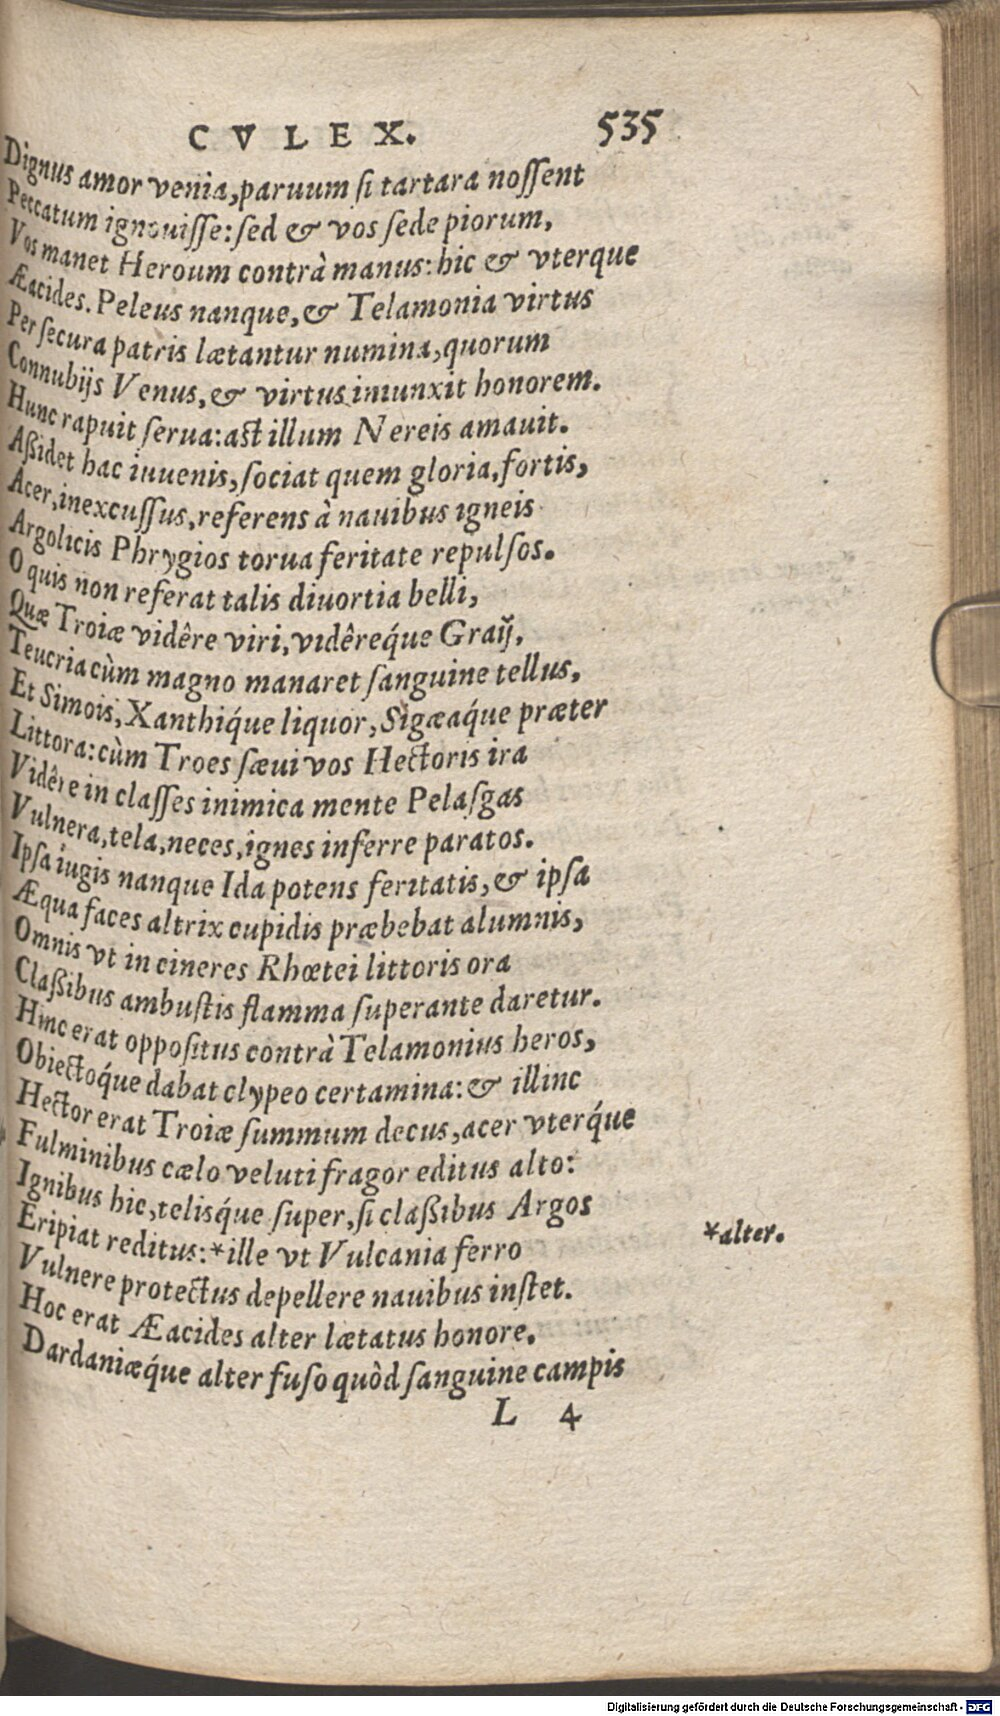 CVLEX. 535
Dignus amor venia, paruum si tartara nossent
Peccatum ignouisse: sed & vos sede piorum,
Vos manet Heroum contrà manus: hic & vterque
Æacides. Peleus nanque, & Telamonia virtus
Per secura patris lætantur numina, quorum
Connubijs Venus, & virtus iniunxit honorem.
Hunc rapuit serua: ast illum Nereis amauit.
Aßidet hac iuuenis, sociat quem gloria, fortis,
Acer, inexcussus, referens à nauibus igneis
Argolicis Phrygios torua feritate repulsos.
O quis non referat talis diuortia belli,
Quæ Troiæ vidêre viri, vidêreq́ue Graij,
Teucria cùm magno manaret sanguine tellus,
Et Simois, Xanthiq́ue liquor, Sigæaq́ue præter
Littora: cùm Troes sæui vos Hectoris ira
Vidêre in classes inimica mente Pelasgas
Vulnera, tela, neces, ignes inferre paratos.
Ipsa iugis nanque Ida potens feritatis, & ipsa
Æqua faces altrix cupidis præbebat alumnis,
Omnis vt in cineres Rhœtei littoris ora
Claßibus ambustis flamma superante daretur.
Hinc erat oppositus contrà Telamonius heros,
Obiectoq́ue dabat clypeo certamina: & illinc
Hector erat Troiæ summum decus, acer vterq́ue
Fulminibus cælo veluti fragor editus alto:
Ignibus hic, telisq́ue super, si claßibus Argos
Eripiat reditus: *ille vt Vulcania ferro
*alter.
Vulnere protectus depellere nauibus instet.
Hoc erat Æacides alter lætatus honore.
Dardaniæq́ue alter fuso quòd sanguine campis
L 4
Digitalisierung gefördert durch die Deutsche Forschungsgemeinschaft - DFG